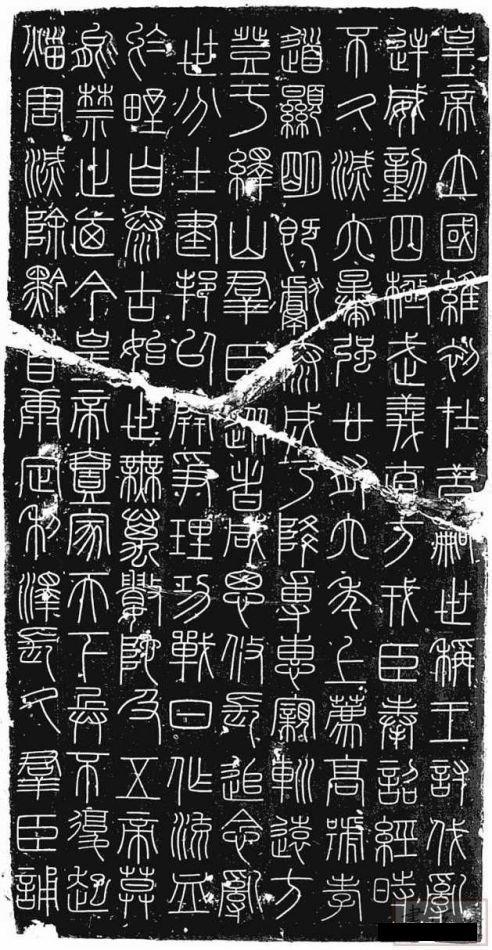 皇帝立國維初在昔嗣世稱王討伐亂
逆威動四極武義直方戎臣奉詔經時
不久滅六暴強廿有六年上薦高號孝
道顯明既獻泰成乃降專惠寴軔遠方
登于繹山羣臣從者咸思攸長追念亂
世分土建邦以開爭理功戰日作流血
於野自泰古始世無萬數陀及五帝莫
能禁止迺今皇帝壹家天下兵不復起
災害滅除黔首康定利澤長久羣臣誦